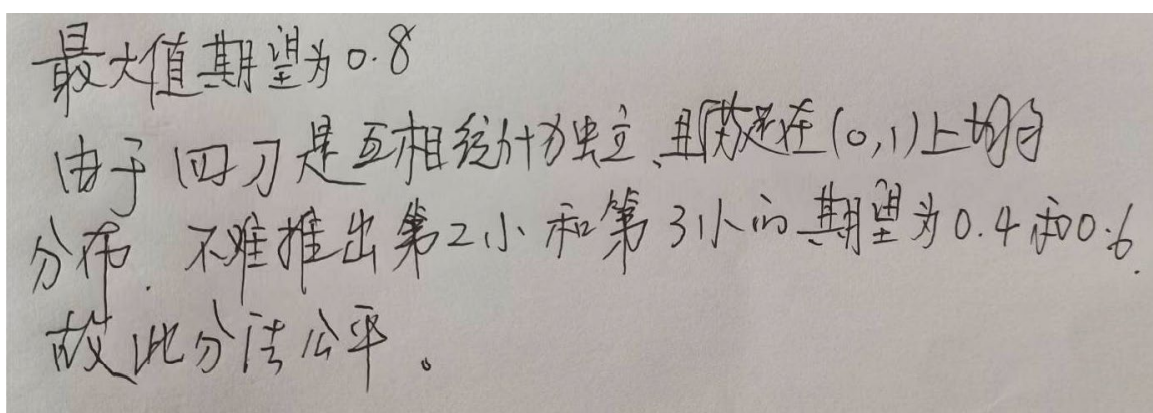 最大值期望为0.8
由于四刀是互相统计独立,且满足在(0,1)上均匀
分布.不难推出第2小和第3小的期望为0.4和0.6.
故此分法公平。